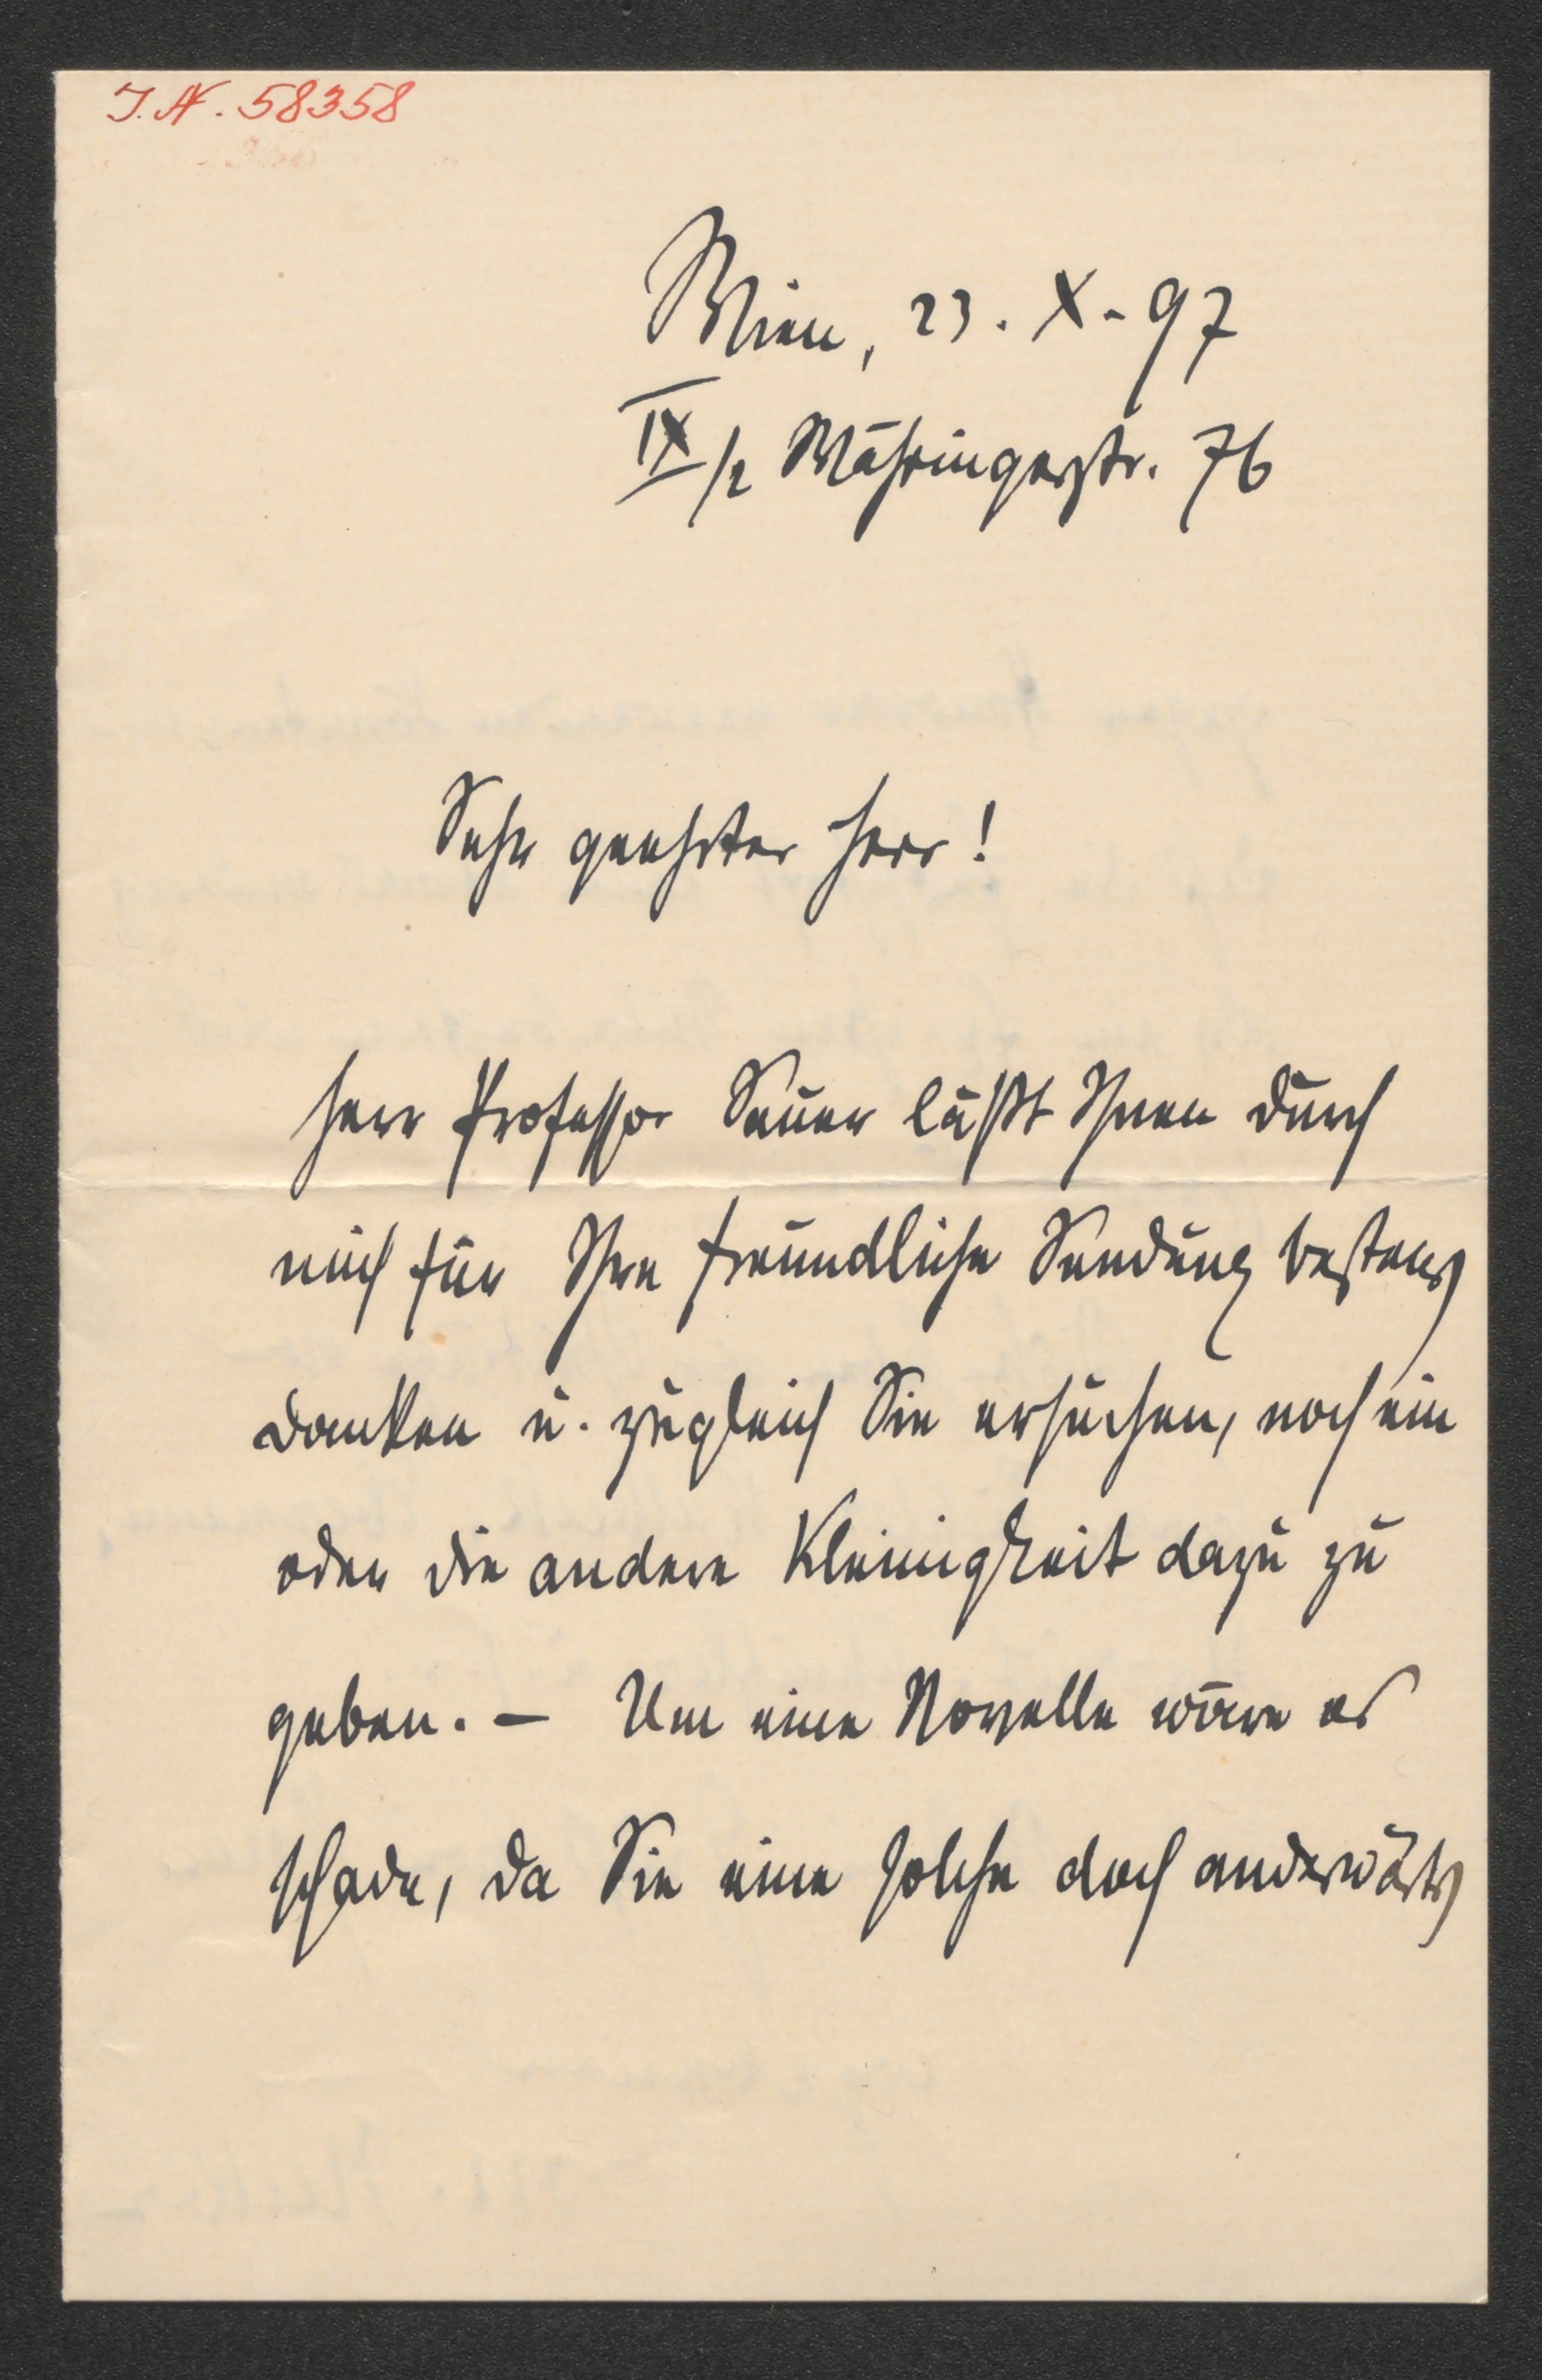 I.N. 58358
Wien, 23. X. 97
IX/2 Währingerstr. 76
Sehr geehrter Herr!
Herr Professor Sauer läßt Ihnen durch
mich für Ihre freundliche Sendung bestens
danken u. zugleich Sie ersuchen, noch ein
oder die andere Kleinigkeit dazu zu
geben. – Um eine Novelle wäre es
schade, da Sie eine solche doch anderwärts